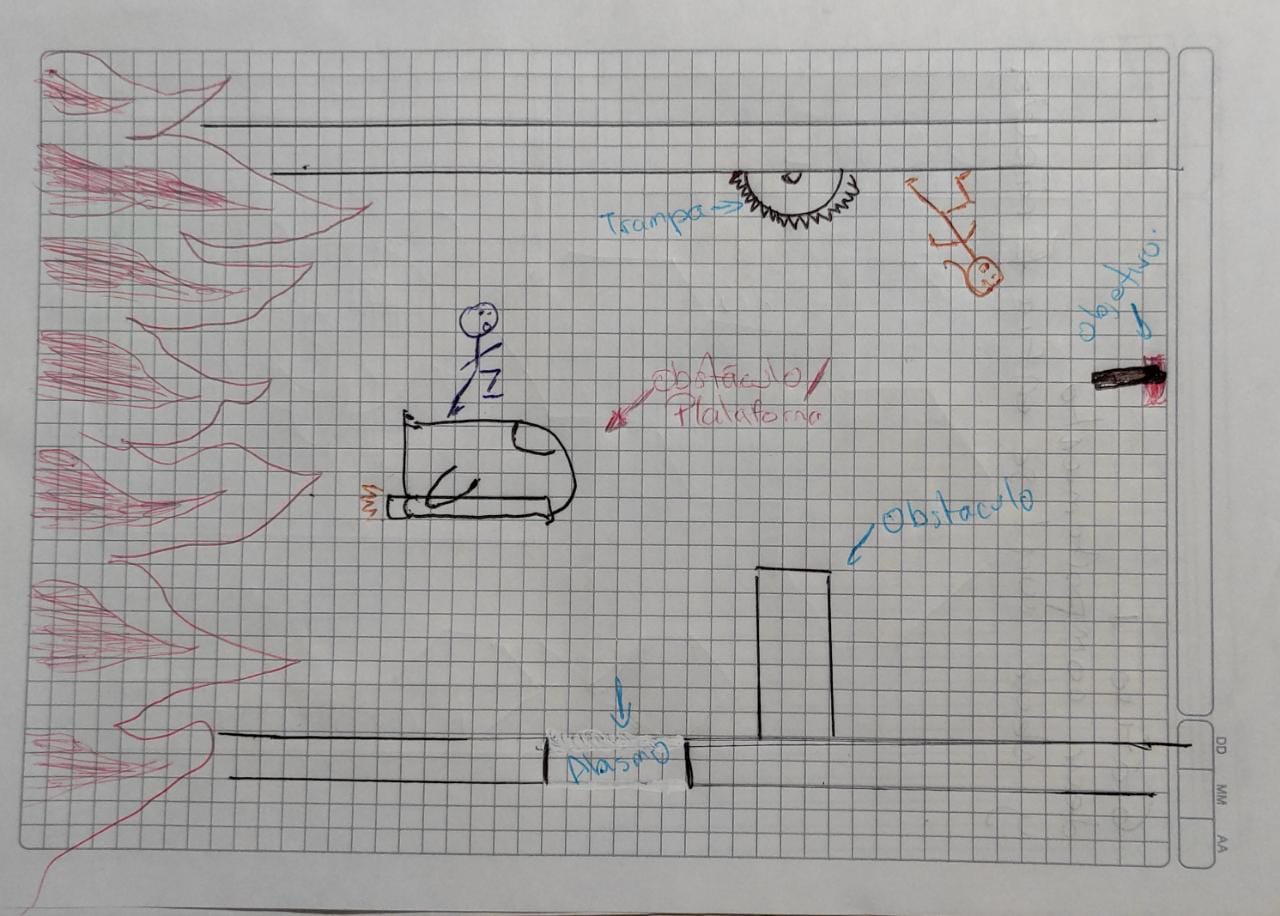 Trampa
Objetivo.
Obstáculo/
Plataforma
Obstaculo
Abismo
DD
MM
AA